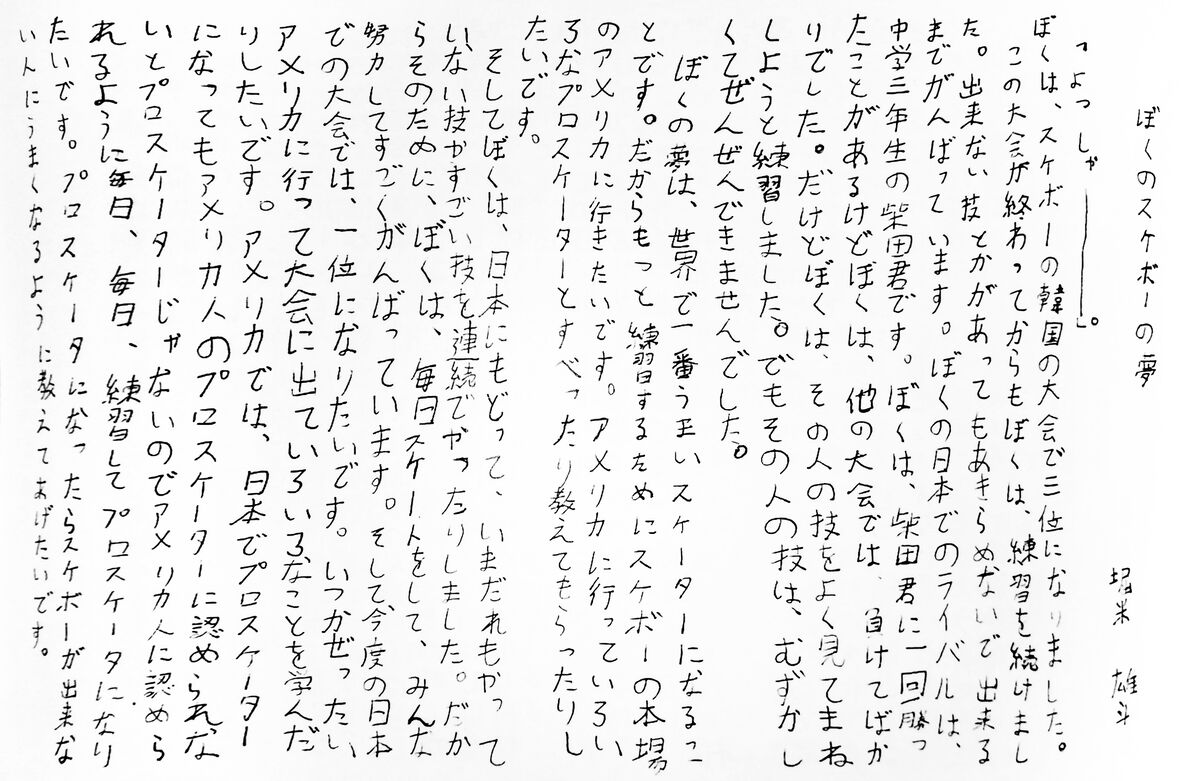 ぼくのスケボーの夢
堀米 雄斗
「よっしゃ――――」。
ぼくは、スケボーの韓国の大会で三位になりました。
この大会が終わってからもぼくは、練習を続けまし
た。出来ない技とかがあってもあきらめないで出来る
までがんばっています。ぼくの日本でのライバルは、
中学三年生の柴田君です。ぼくは、柴田君に一回勝っ
たことがあるけどぼくは、他の大会では、負けてばか
りでした。だけどぼくは、その人の技をよく見てまね
しようと練習しました。でもその人の技は、むずかし
くてぜんぜんできませんでした。
ぼくの夢は、世界で一番うまいスケーターになるこ
とです。だからもっと練習するためにスケボーの本場
のアメリカに行きたいです。アメリカに行っていろい
ろなプロスケーターとすべったり教えてもらったりし
たいです。
そしてぼくは、日本にもどって、いまだれもやって
いない技やすごい技を連続でやったりしました。だか
らそのために、ぼくは、毎日スケートをして、みんな
努力してすごくがんばっています。そして今度の日本
での大会では、一位になりたいです。いつかぜったい
アメリカに行って大会に出ていろいろなことを学んだ
りしたいです。アメリカでは、日本でプロスケーター
になってもアメリカ人のプロスケーターに認められな
いとプロスケーターじゃないのでアメリカ人に認めら
れるように毎日、毎日、練習してプロスケータになり
たいです。プロスケータになったらスケボーが出来な
い人にうまくなるように教えてあげたいです。